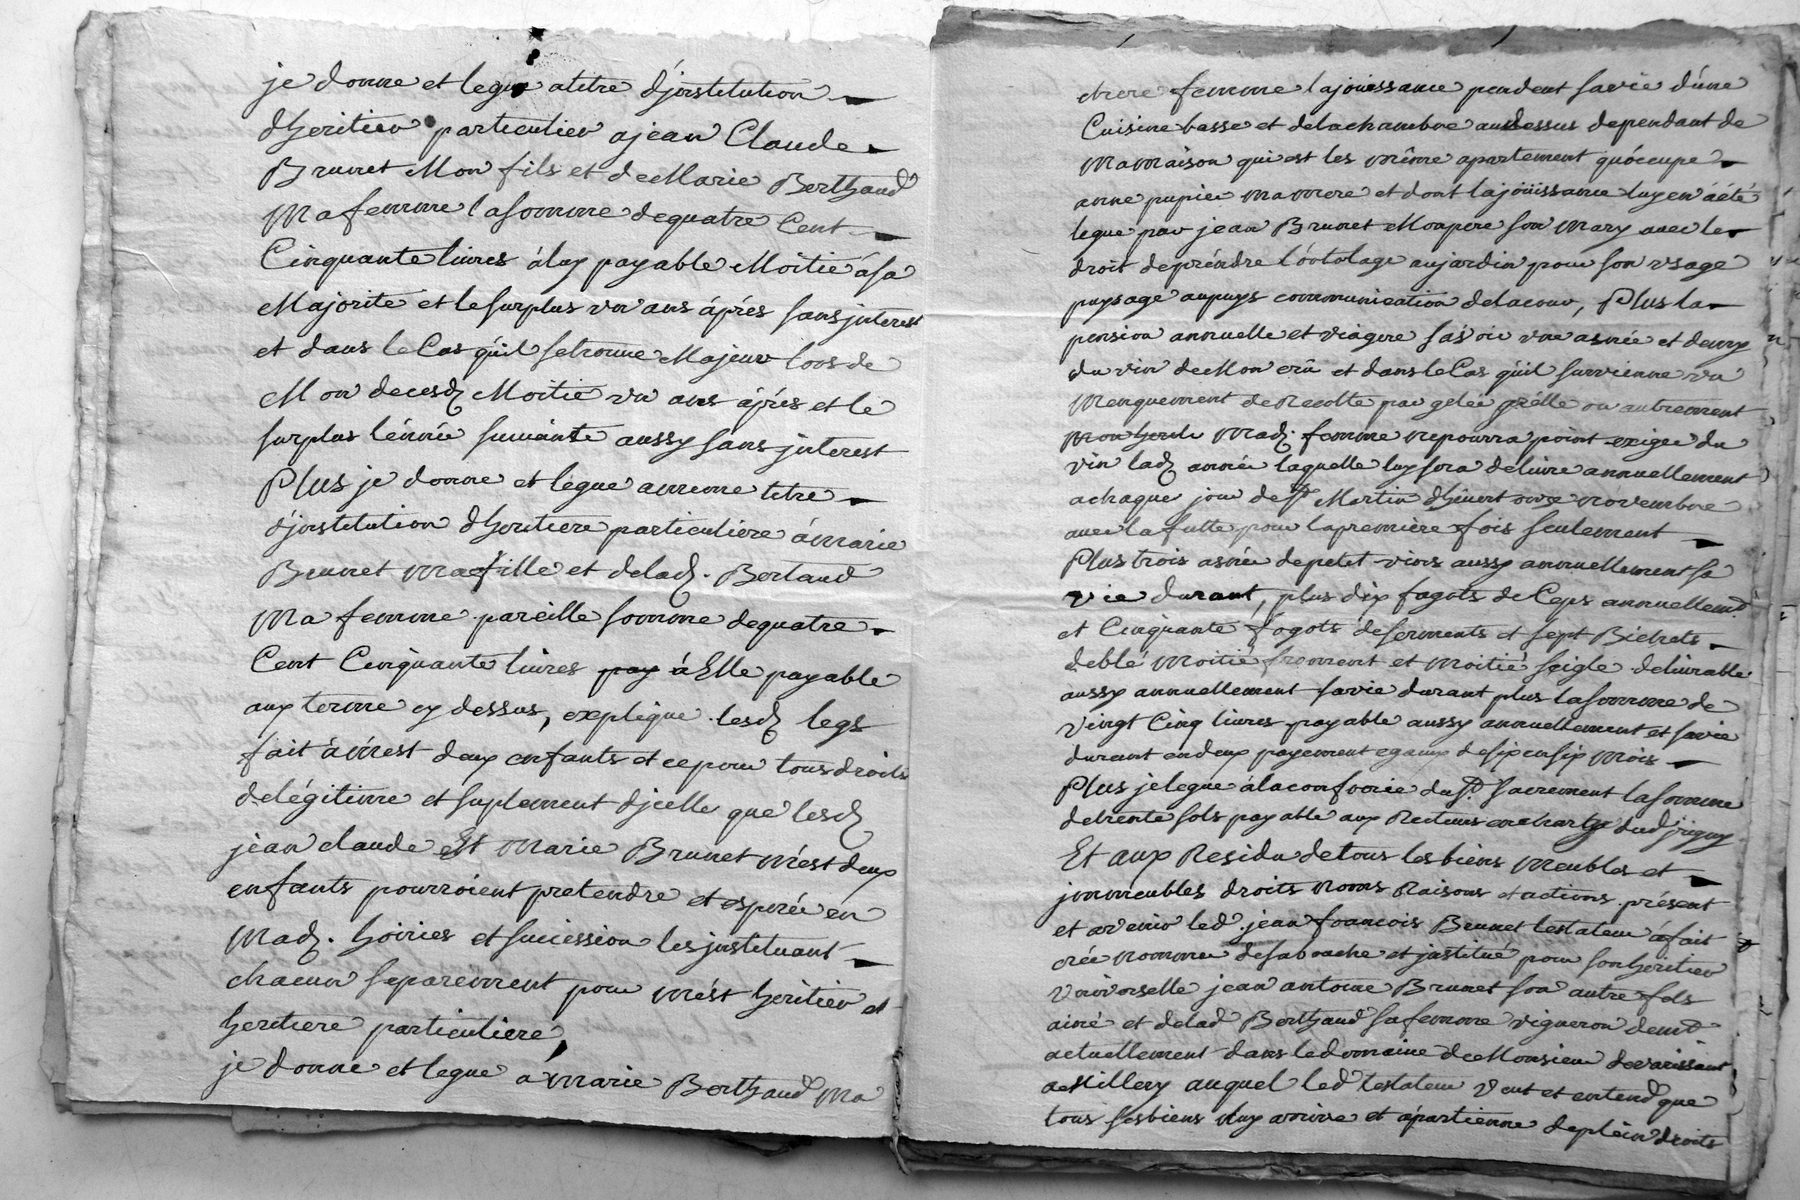 je donne et legue a titre d'jnstitution
d'heritier particulier a jean Claude
Brunet Mon fils et de Marie Berthaud
Ma femme la somme de quatre Cent
Cinquante livres à luy payable Moitié á sa
Majorité et le surplus un ans áprés sans jnterest
et dans le Cas qu'il se trouve Majeur lors de
Mon decesd Moitié un ans áprés et le
surplus lénnée suivante aussy sans jnterest
Plus je donne et legue a meme titre
d'jnstitution d'heritiere particuliere á marie
Brunet ma fille et de lad. Bertaud
Ma femme pareille somme de quatre
Cent Cinquante livres pay à Elle payable
aux terme cy dessus, explique lesd legs
fait à mest deux enfants et ce pour tous droits
de légitime et suplement d'jcelle que lesd
jean claude Et Marie Brunet mest deux
enfants pourroient pretendre et esperée en
Mad. hoiries et succession les jnstituant
chacun separement pour mést heritier et
heritiere particuliere,
je donne et legue á marie Berthaud Ma
chere femme la joüissance pendent sa vie d'úne
Cuisine basse et de la chambre au dessus dependant de
Ma maison qui est les même apartement qu'óccupe
anne pupier ma mere et dont la joüissance luy en á été
legue par jean Brunet Mon pere son Mary avec le
droit de préndre l'ótolage au jardin pour son usage
puysage au puys communication de la cour, Plus la
pension annuelle et viagere sa voir une asnée et demy
du vin de Mon crû et dans le Cas qu'il survienne un
Menquement de Recolte par gelée grélle ou autrement
Mad. femme ne pourra point exigée du
vin lad année laquelle luy sera delivre annuellement
a chaque jour de St Martin d'hivert onze novembre
avec la futte pour la premiere fois seulement
Plus trois asnée de petet vins aussy annuellement sa
vie durant, plus dix fagots de Ceps annuellemt
et Cinquante fagots de serments et sept Bichets
de blé moitié froment et moitié seigle delivrable
aussy annuellement sa vie durant plus la somme de
vingt Cinq livres payable aussy annuellement et sa vie
durant en deux payement egaux de six en six mois
Plus je legue á la confrerie du St Sacrement la somme
de trente sols payable aux Recteurs en charge dud jrigny
Et aux Residu de tous les biens meubles et
jmmeubles droits noms Raisons et actions présent
et avenir led. jean francois Brunet testateur á fait
crée nommée de sa bouche et jnstitué pour son heritier
Universelle jean antoine Brunet son autre fils
ainé et de lad Berthaud sa femme vigneron demt
actuellement dans le domaine de Monsieur
a Millery auquel led testateur Veut et entend que
tous ses biens luy arrive et ápartienne de plein droits